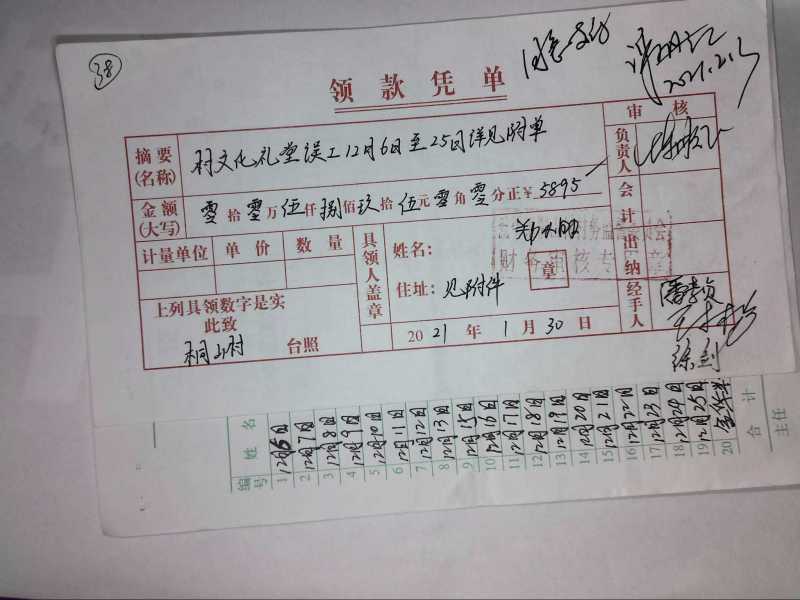 38
领款凭单
同意支付
2021.2.2
审核
摘要(名称)
村文化礼堂误工12月6日至25日详见附单
负责人
金额(大写)
零拾零万伍仟捌佰玖拾伍元零角零分正¥5895
会计
计量单位 单价 数量
具领人盖章
姓名:
财务审核专用章
章
出纳
住址: 见附件
上列具领数字是实
此致
桐山村 台照
2021年1月30日
经手人
徐剑
编号 姓名
1 12月6日
2 12月7日
3 12月8日
4 12月9日
5 12月10日
6 12月11日
7 12月12日
8 12月13日
9 12月15日
10 12月16日
11 12月17日
12 12月18日
13 12月19日
14 12月20日
15 12月21日
16 12月22日
17 12月23日
18 12月24日
19 12月25日
20
合计
主任